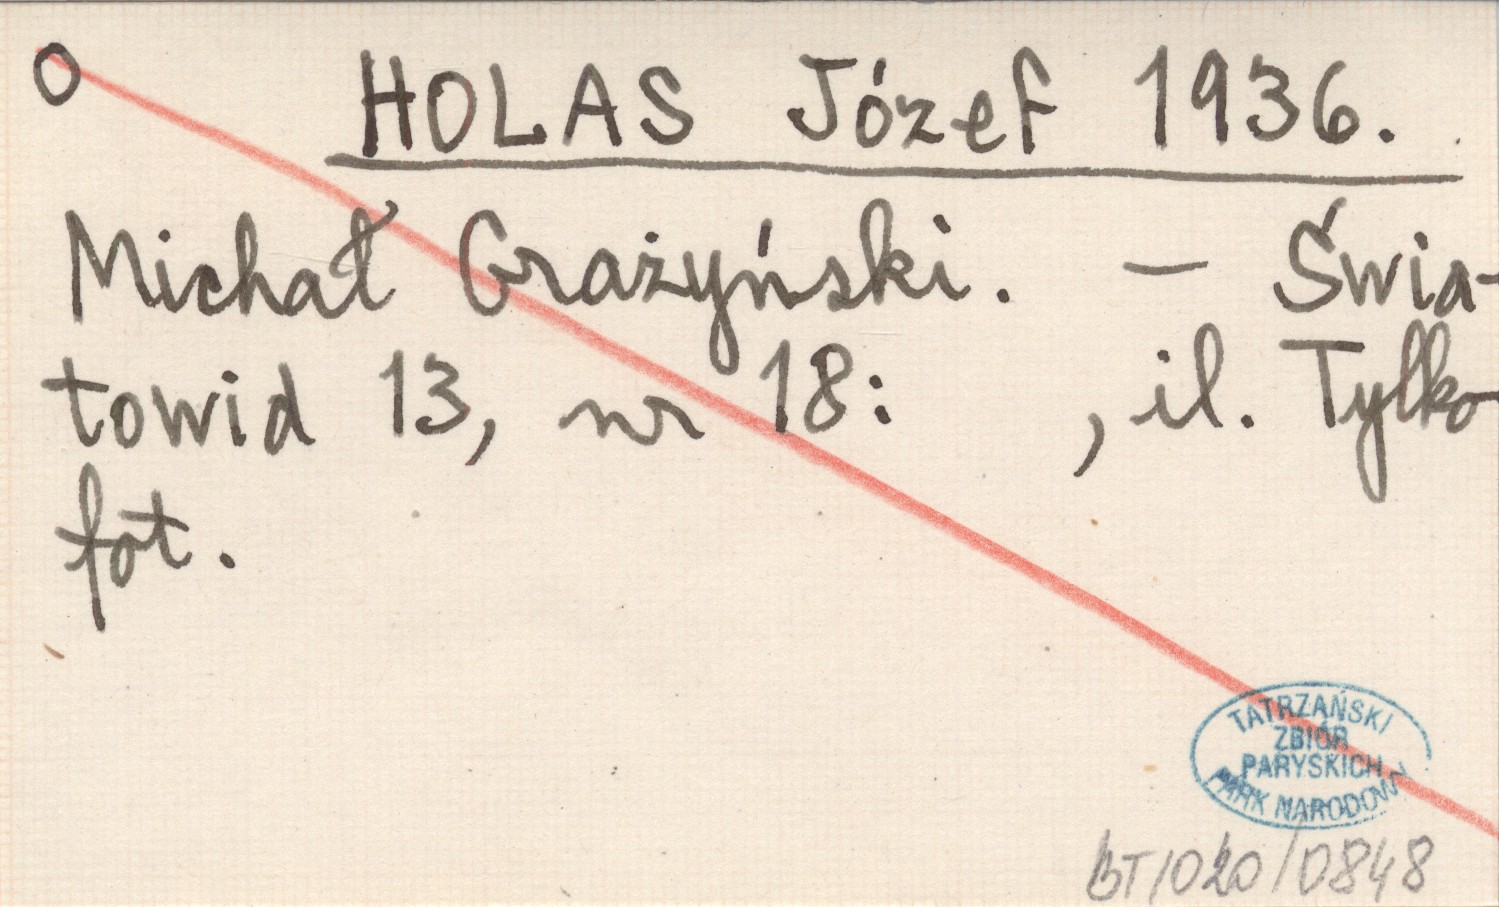 O HOLAS Józef 1936.
Michał Grażyński. — Świa-
towid 13, nr 18: , il. Tylko
fot.
TATRZAŃSKI
ZBIÓR
PARYSKICH
PARK NARODOWY
BT/020/0848